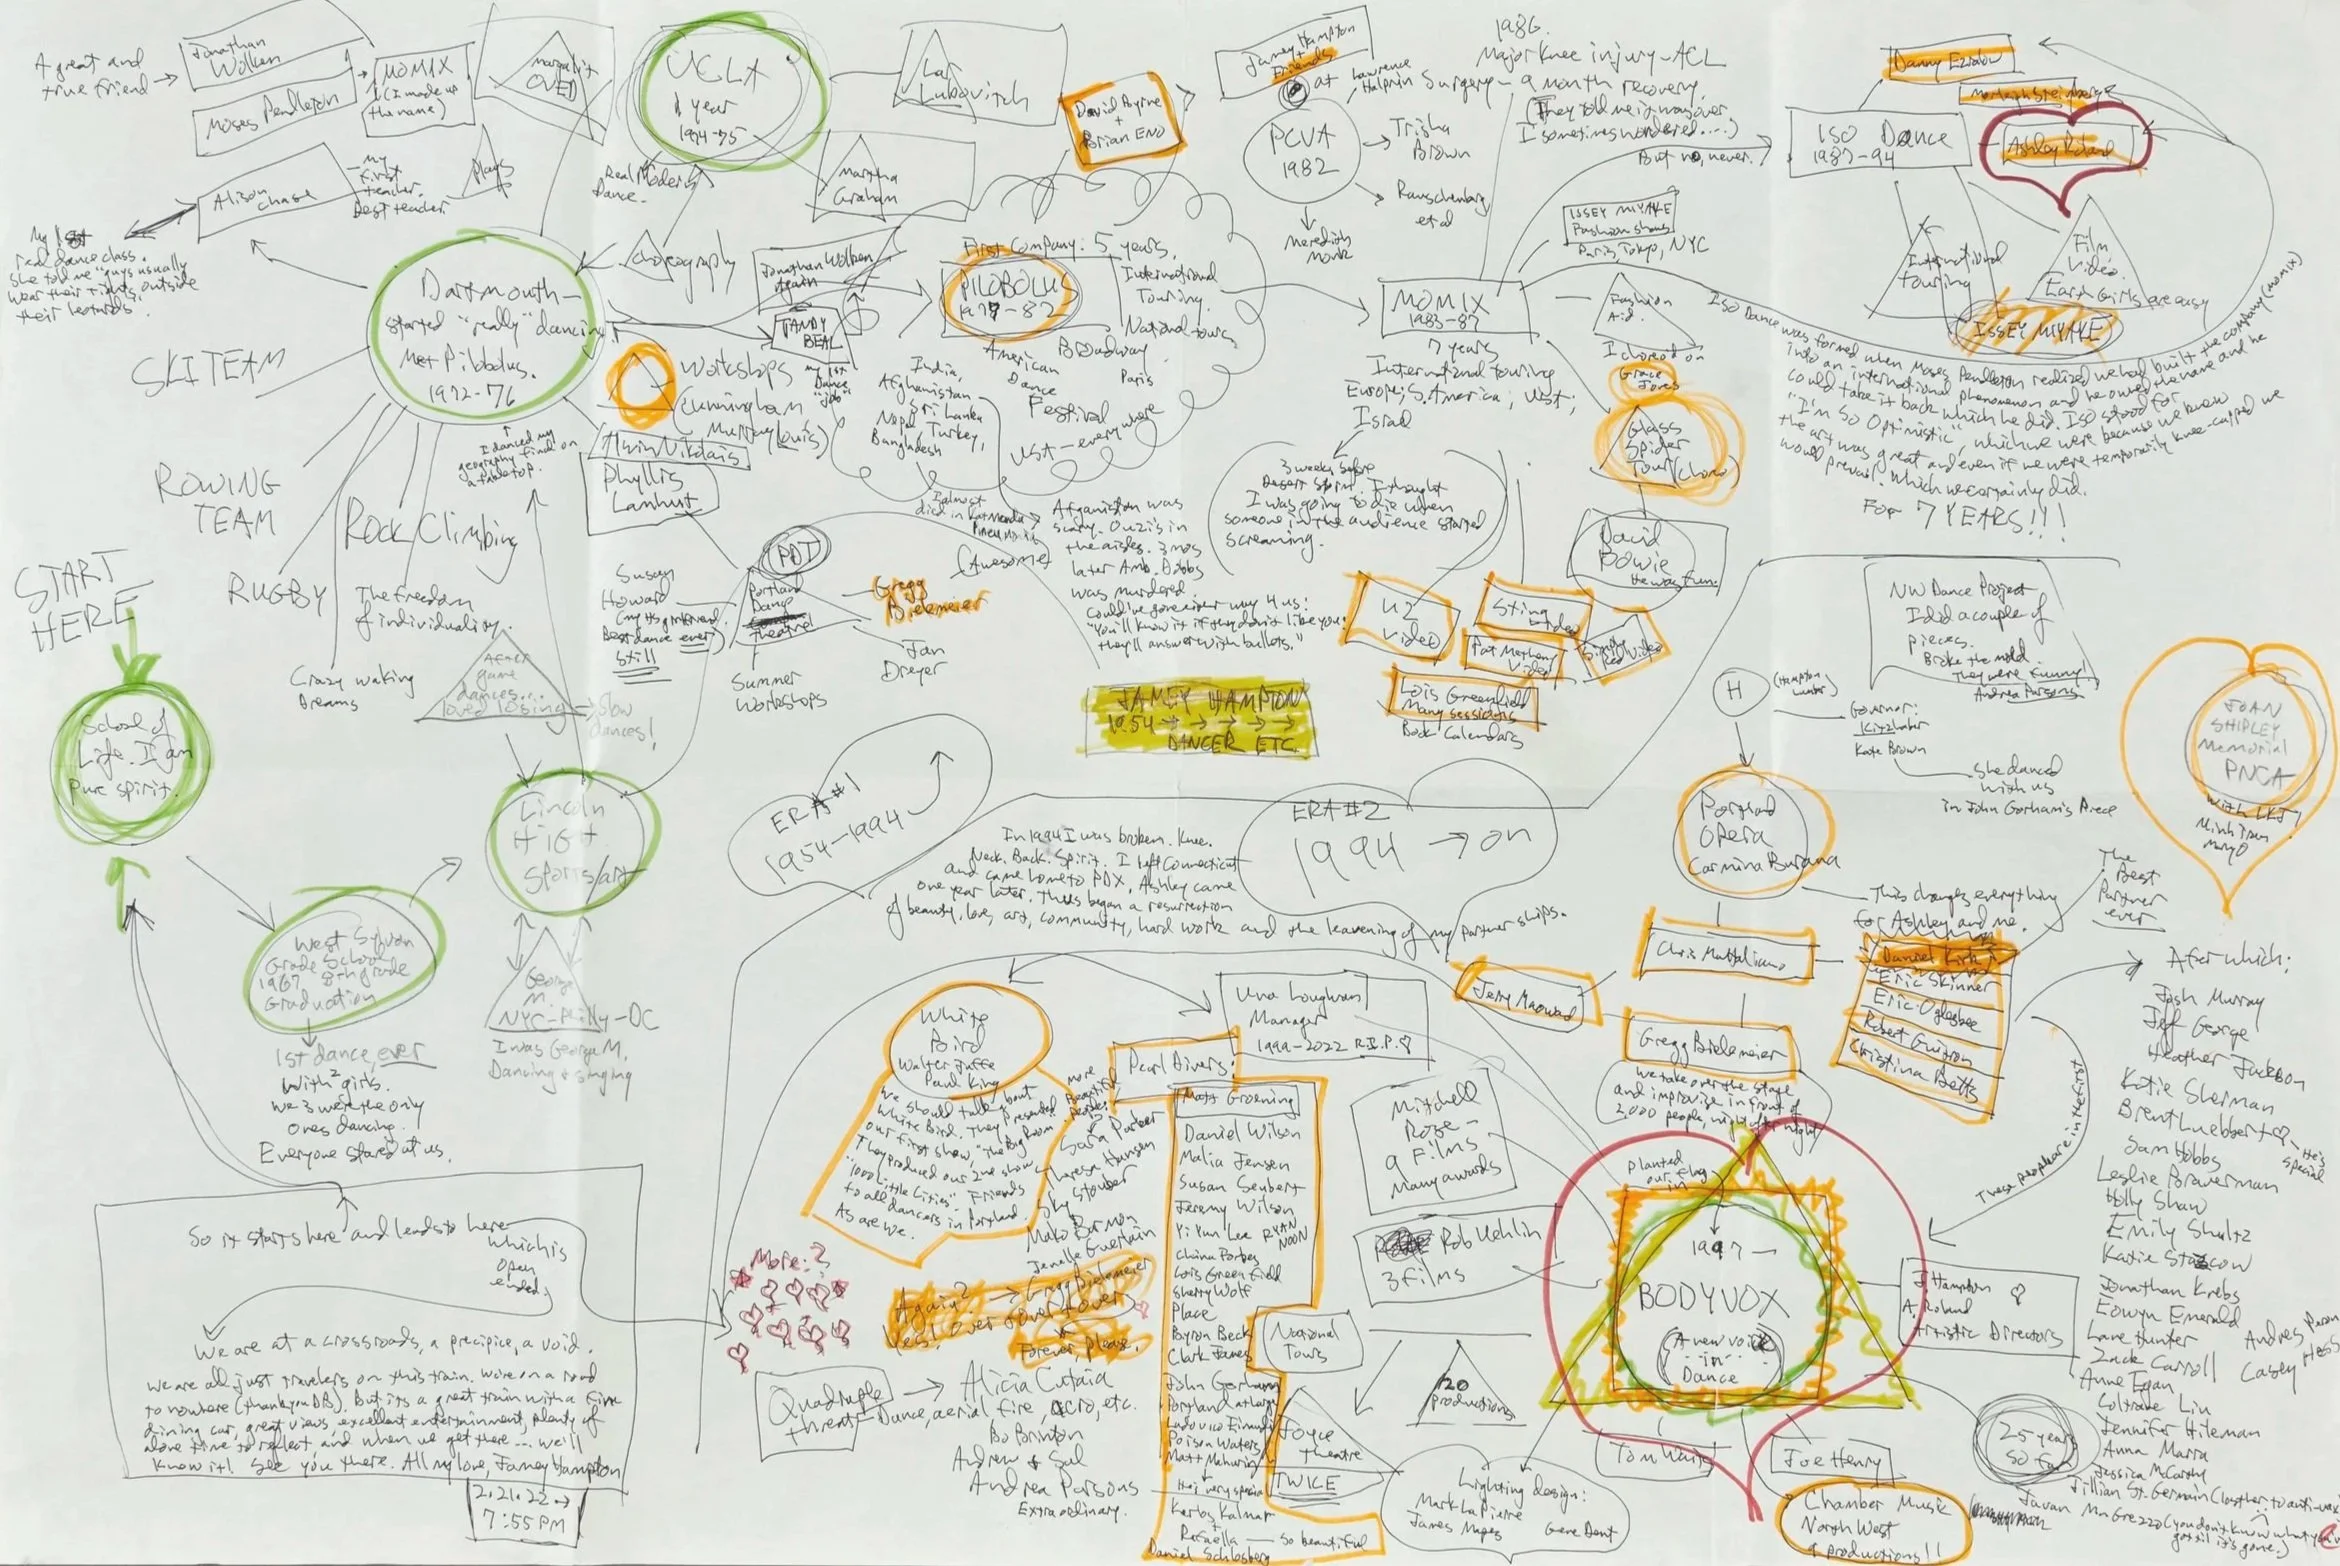 A great and
true friend
Jonathan
Wolken
Moses Pendleton
MOMIX
(I made up
the name)
Margalit
OVED
UCLA
1 year
1974-75
Lar
Lubovitch
Alison
Chase
My
first
teacher.
Best teacher.
Plays
Real Modern
Dance.
Martha
Graham
Choreography
My 1st
real dance class.
She told me "guys usually
wear their tights outside
their leotards.
Dartmouth -
started "really" dancing
Met Pilobolus.
1972-76
SKI TEAM
ROWING
TEAM
RUGBY
Rock Climbing
The freedom
of individuality.
Crazy waking
Dreams
I danced my
geography final on
a tabletop.
After
game
dances...
loved losing
Slow
dances!
Workshops
Cunningham
Murray Louis
Alwin Nikolais
Phyllis
Lamhut
Jonathan Wolken
again
TANDY
BEAL
my 1st
Dance
"job"
David Byrne
+
Brian ENO
First Company: 5 years.
PILOBOLUS
1977-82
International
Touring.
National tours
Broadway
Paris
American
Dance
Festival
USA - everywhere
India,
Afghanistan
Sri Lanka
Nepal, Turkey,
Bangladesh
I almost
died in Katmandu
Pneumonia
(Awesome)
Afganistan was
scary. Ouzi's in
the aisles. 3 mos
later Amb. Dobbs
was murdered.
Could've gone either way 4 us:
"You'll know it if they don't like you:
they'll answer with bullets."
PDT
Portland
Dance
Theatre
Susan
Howard
(my HS girlfriend.
Best dance ever)
Still
Gregg
Bielemeier
Jan
Dreyer
Summer
Workshops
Jamey Hampton
+
Friends
at Lawrence
Halprin
PCVA
1982
Trisha
Brown
Rauschenberg
et al
Meredith
Monk
1986.
Major Knee injury - ACL
Surgery - 9 month recovery.
(They told me it was over
I sometimes wondered....)
But no, never.
ISSEY MIYAKE
Fashion shows
Paris, Tokyo, NYC
MOMIX
1983-87
7 years
International touring
Europe, S. America, USA,
Israel
3 weeks before
Desert Storm. I thought
I was going to die when
someone in the audience started
screaming.
Fashion
Aid.
I choreo'd on
Grace
Jones
Glass
Spider
Tour (choreo)
David
Bowie
He was fun.
U2
Video
Sting
Video
Pat Metheny
Video
Simply
Red Video
Lois Greenfield
Many sessions
Book Calendars
ISO Dance
1987-94
Danny Ezralow
Morleigh Steinberg
Ashley Roland
International
touring
Film
Video
Earth Girls are easy
ISSEY MIYAKE
ISO Dance was formed when Moses Pendleton realized we had built the company (MOMIX)
into an international phenomenon and he owned the name and he
could take it back which he did. ISO stood for
"I'm So Optimistic", which we were because we knew
the art was great and even if we were temporarily knee-capped we
would prevail. Which we certainly did.
FOR 7 YEARS!!!
JAMEY HAMPTON
1954 → → → → →
DANCER ETC.
NW Dance Project
I did a couple of
pieces.
Broke the mold
They were funny.
Andrea Parsons
H
(Hampton
Lumber)
Governor:
Kitzhaber
Kate Brown
She danced
with us
in John Gorham's Piece
JOAN
SHIPLEY
Memorial
PNCA
with LKJ
Minh Tran
Mary O
START
HERE
School of
Life. I am
Pure spirit.
West Sylvan
Grade School
1967 8th grade
Graduation
1st dance, ever
With 2 girls.
We 3 were the only
ones dancing.
Everyone stared at us.
Lincoln
HIGH
Sports/art
George
M.
NYC-Philly-DC
I was George M.
Dancing + singing
ERA #1
1954-1994
ERA #2
1994 → on
In 1994 I was broken. Knee.
Neck. Back. Spirit. I left Connecticut
and came home to PDX, Ashley came
one year later. Thus began a resurrection
of beauty, love, art, community, hard work and the leavening of my partnerships.
Portland
Opera
Carmina Burana
This changes everything
for Ashley and me.
The
Best
Partner
ever
Chris Mattaliano
Jerry Mouawad
Gregg Bielemeier
We take over the stage
and improvise in front of
2,000 people, night after night
Daniel Kirk
Eric Skinner
Eric Oglesbee
Robert Guitron
Christina Betts
These people are in the first
After which:
Josh Murray
Jeff George
Heather Jackson
Katie Sherman
Brent Luebbert
He's
special
Sam Hobbs
Leslie Braverman
Holly Shaw
Emily Shultz
Katie Staszkow
Jonathan Krebs
Eowyn Emerald
Lane Hunter
Zack Carroll
Anne Egan
Coltrane Liu
Jennifer Hileman
Anna Marra
Jessica McCarthy
Jillian St. Germain (lost her to anti-vax)
Javan McGrezzo (you don't know what you
got til it's gone.)
Andres Peron
Casey Hess
White
Bird
Walter Jaffe
Paul King
We should talk about
White Bird. They presented
our first show, "The Big Room"
They produced our 2nd show
"1000 Little Cities". Friends
to all dancers in Portland.
As are we.
Una Loughran
Manager
1999-2022 R.I.P.
Pearl Divers:
More
Beautiful
People:
Sara Parker
Theresa Hansen
Sky Stouber
Mako Barmon
Jenelle Guerlain
Matt Groening
Daniel Wilson
Malia Jensen
Susan Seubert
Jeremy Wilson
Yi Yun Lee RYAN
NOON
China Forbes
Lois Greenfield
Sherry Wolf
Place
Byron Beck
Clark James
John Gorham
Portland at Large
Ludovico Einaudi
Poison Waters
Matt Mahurin
He's very special
Kerby Kalmar
+
Rafaella - so beautiful
Daniel Schlosberg
Again?
Yes! Over + over + over
Gregg Bielemeier
Forever, please.
More:?
Quadruple
threat
Alicia Cutaia
Dance, aerial, fire, acro, etc.
Bo Brinton
Andrew + Sul
Andrea Parsons
Extraordinary.
Mitchell
Rose -
9 Films
Many awards
Rob Uehlin
3 films
National
Tours
Joyce
Theatre
TWICE
120
productions
Planted
our flag
in
1997 -
BODYVOX
(A new voice
in
Dance
J. Hampton
A. Roland
Artistic Directors
25 years
so far
Tom Waits
Joe Henry
Chamber Music
North West
9 productions!!
Lighting design:
Mark LaPierre
James Mapes Gene Dent
So it starts here and leads to here
which is
open
ended.
We are at a crossroads, a precipice, a void.
We are all just travelers on this train. We're on a road
to nowhere (thank you DB). But it's a great train with a fine
dining car, great views, excellent entertainment, plenty of
alone time to reflect, and when we get there... we'll
know it! See you there. All my love, Jamey Hampton
2.21.22 →
7:55 PM